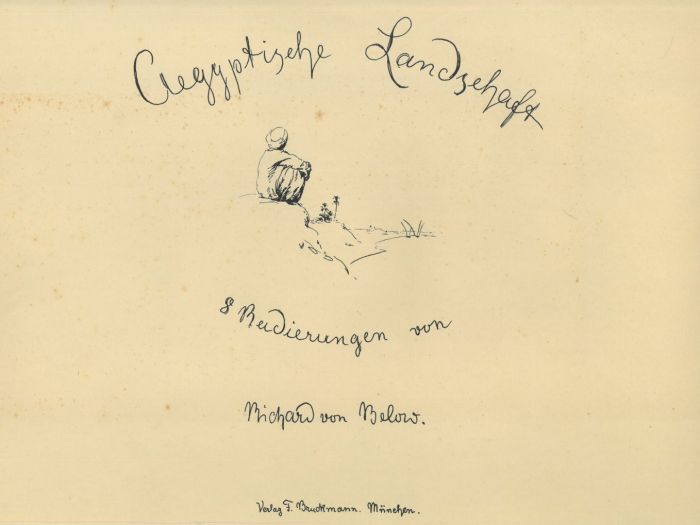 Aegyptische Landschaft
8 Radierungen von
Richard von Below.
Verlag F. Bruckmann. München.